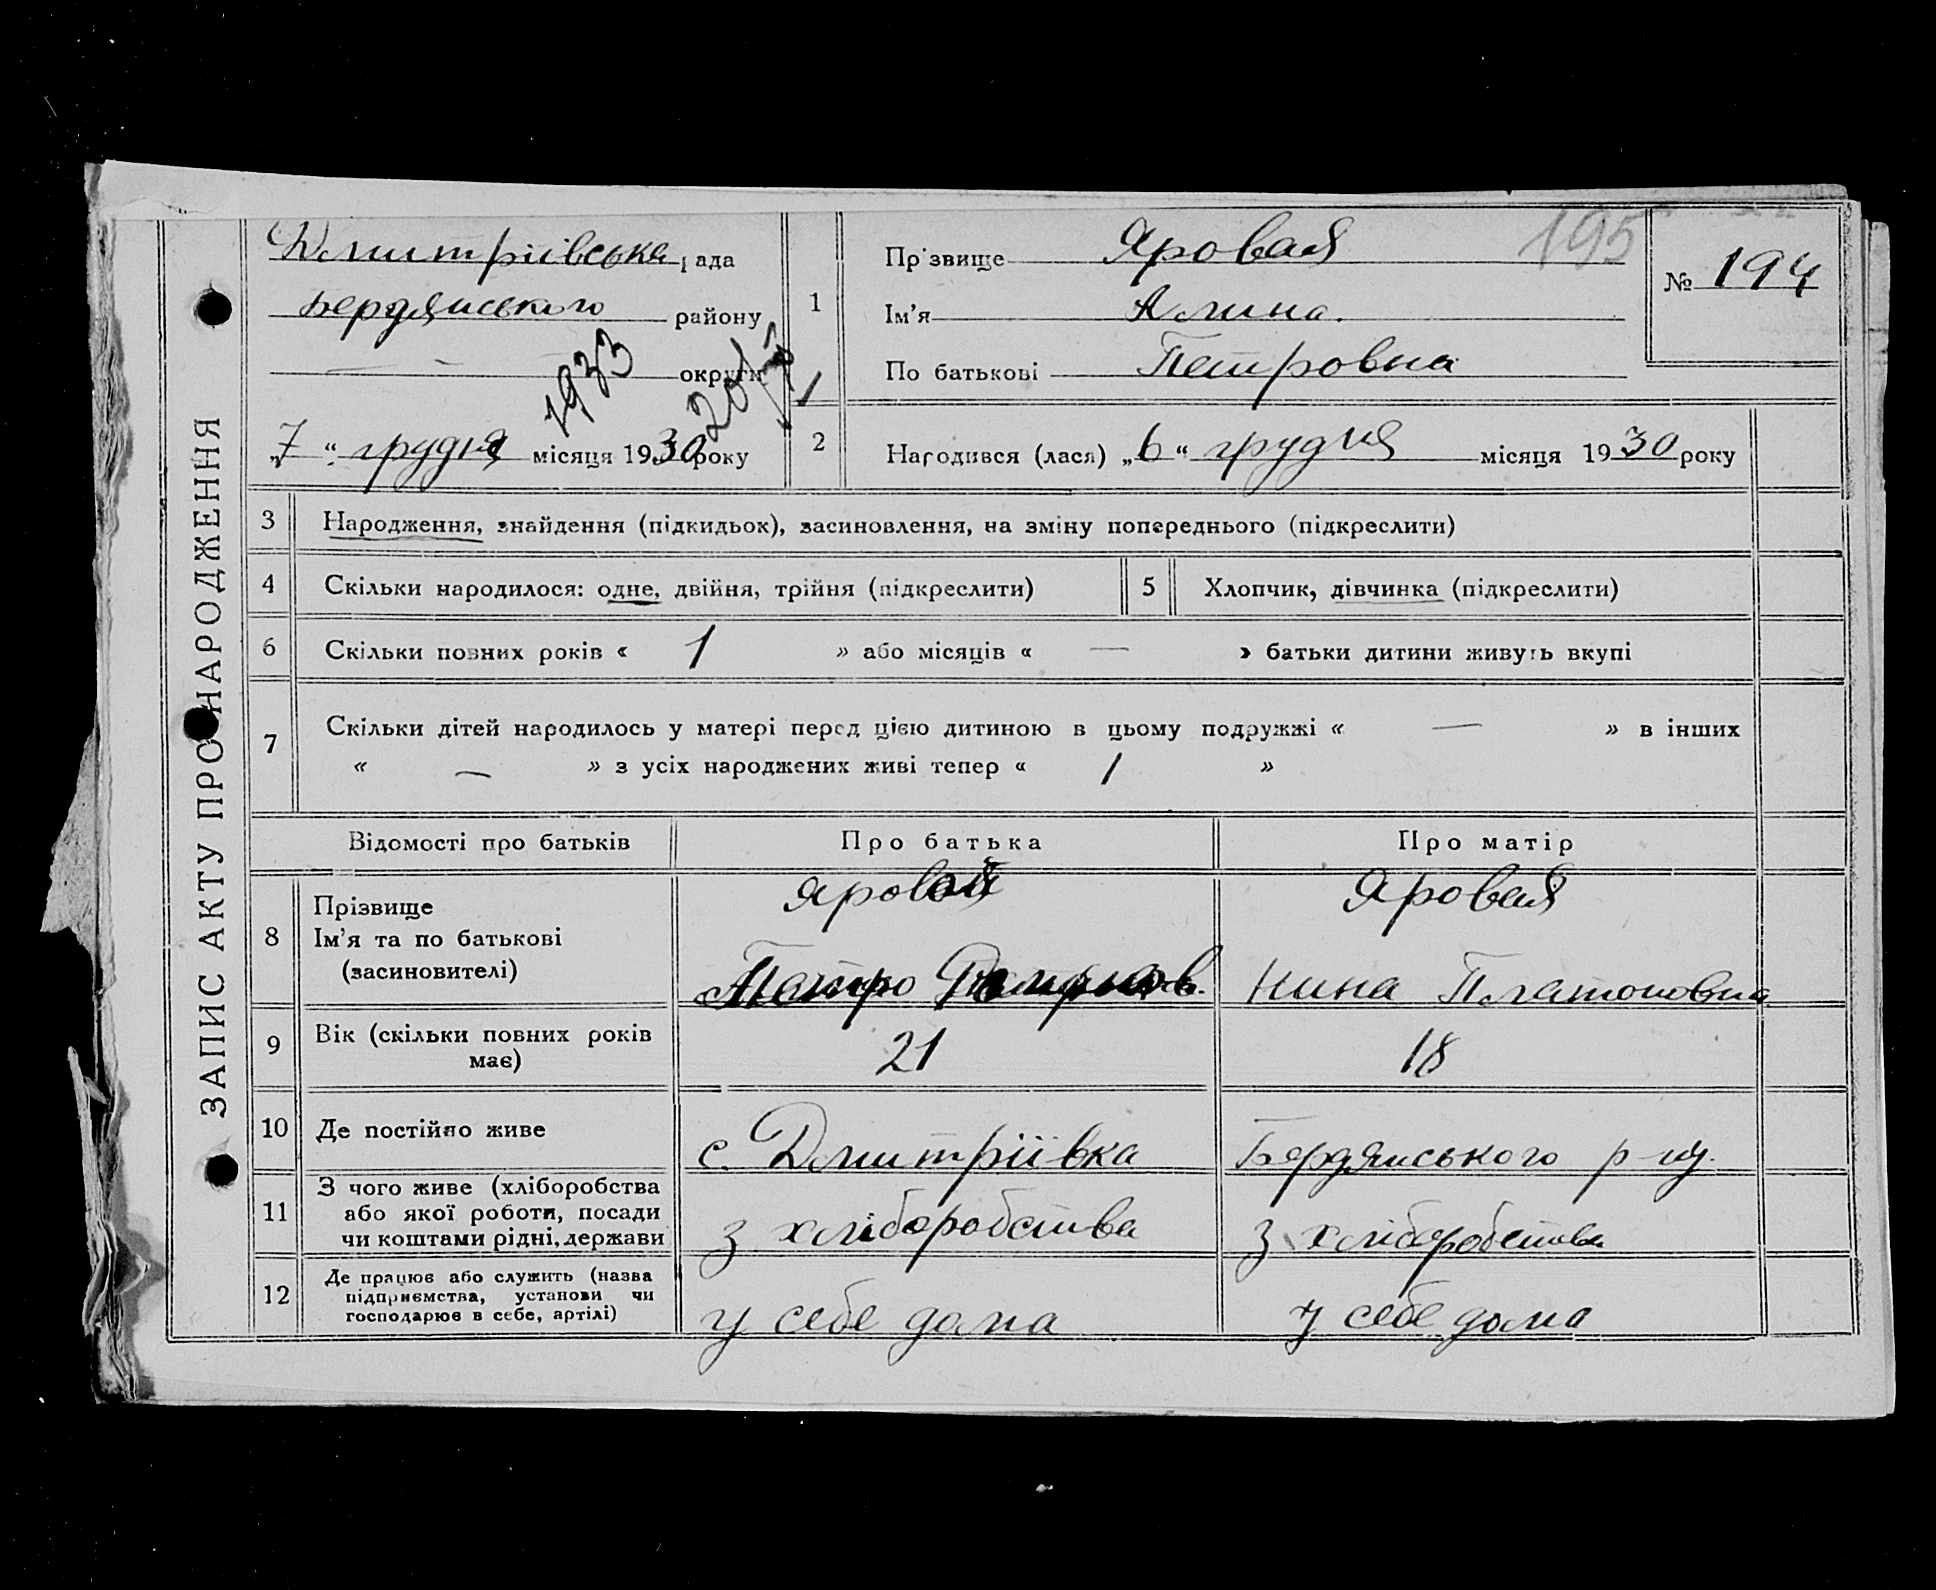 ЗАПИС АКТУ ПРО НАРОДЖЕННЯ
Дмитріівська рада
Бердянського району
округи
1933
20/
„7“ грудня місяця 1930 року
1
Прізвище Яровая
195
№ 194
Ім'я Алина.
По батькові Петровна
2
Народився (лася) „6“ грудня місяця 1930 року
3 Народження, знайдення (підкидьок), засиновлення, на зміну попереднього (підкреслити)
4 Скільки народилося: одне, двійня, трійня (підкреслити) 5 Хлопчик, дівчинка (підкреслити)
6 Скільки повних років « 1 » або місяців « — » батьки дитини живуть вкупі
7 Скільки дітей народилось у матері перед цією дитиною в цьому подружжі « — » в інших
« — » з усіх народжених живі тепер « 1 »
Відомості про батьків Про батька Про матір
8 Прізвище Яровой Яровая
Ім'я та по батькові
(засиновителі) Петро Нина Платоновна
9 Вік (скільки повних років має) 21 18
10 Де постійно живе с. Дмитріівка Бердянського р-ну.
11 З чого живе (хліборобства
або якої роботи, посади
чи коштами рідні, держави з хліборобства з хліборобства
12 Де працює або служить (назва
підприємства, установи чи
господарює в себе, артілі) у себе дома у себе дома